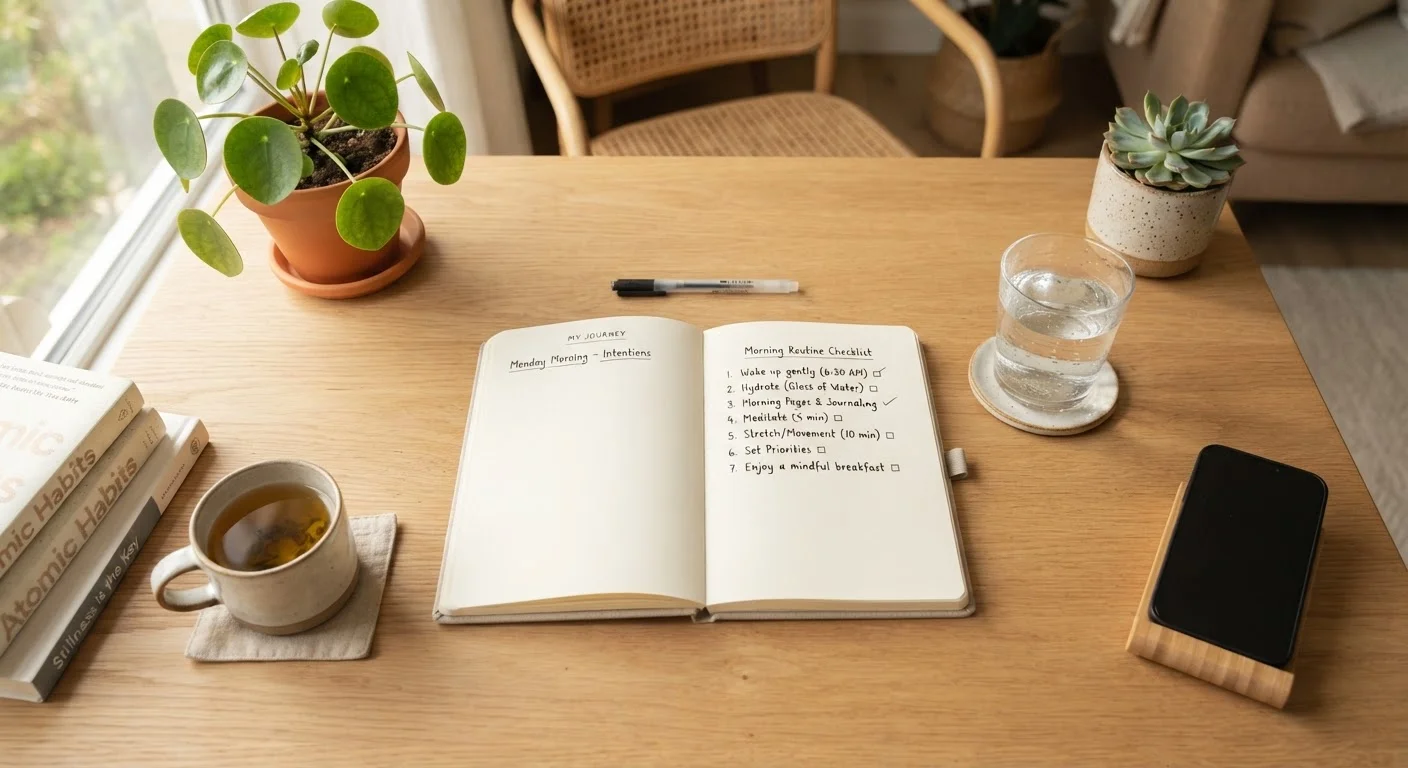 mic
s
mic Habits
Atomic Habits
Stillness is the Key
MY JOURNEY
Menday Morning – Intentions
Morning Routine Checklist
1. Wake up gently (6:30 AM) ☐✓
2. Hydrote (Glass of Water) ☐
3. Morning Pages & Journaling ✓
4. Meditate (5 min) ☐
5. Stretch/Movement (10 min) ☐
6. Set Priorities ☐
7. Enjoy a mindful breakfast ☐